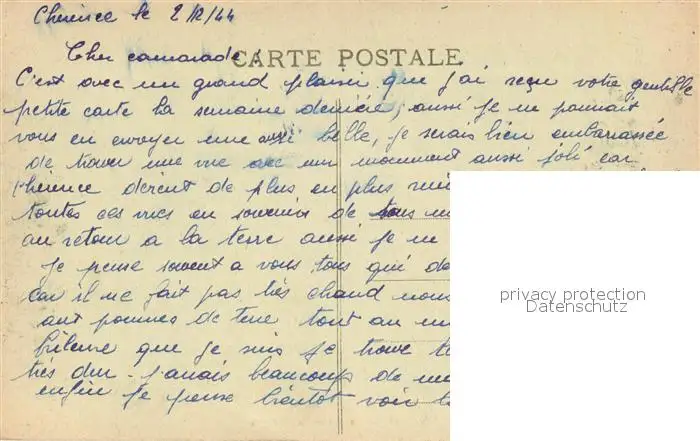 Cherence le 2/12/44
Cher camarade,
CARTE POSTALE
C'est avec un grand plaisir que j'ai reçu votre gentille
petite carte la semaine dernière, aussi je ne pouvait
vous en envoyer une aussi belle, je serais bien embarassée
de trouver une vue avec un monument aussi joli car
Cherence devient de plus en plus
toutes ces vues en souvenir de tous
au retour a la terre aussi je ne
Je pense souvent a vous tous qui
car il ne fait pas très chaud nous
aux pommes de terre tout au
frileuse que je suis je trouve
très dur. J'aurais beaucoup de
enfin je pense bientôt voir
privacy protection
Datenschutz